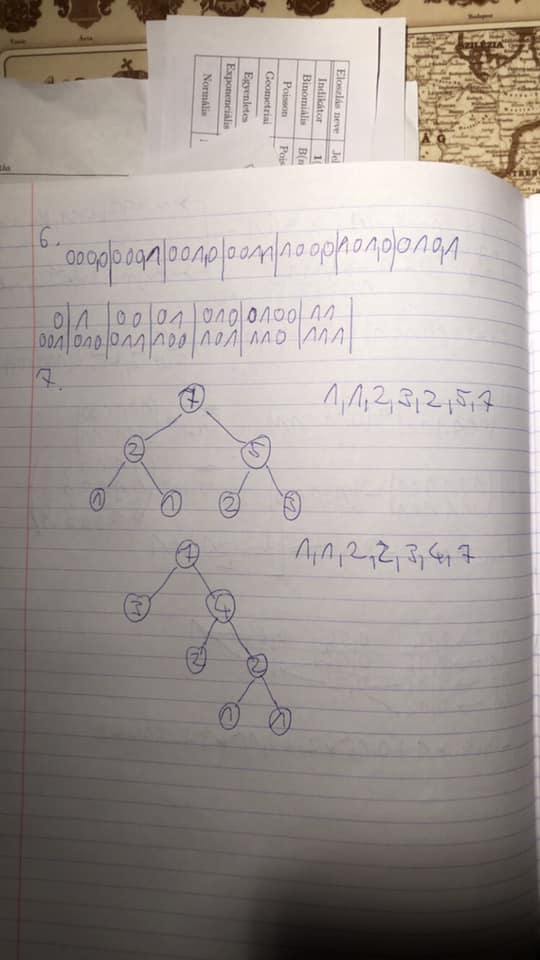 Budapest
SZILÉZIA
ÁG
Eloszlás neve
Indikátor
Binomiális
Poisson
Geometriai
Egyenletes
Exponenciális
Normális
6.
000,0|000,1|001,0|001,1|100,0|101,0|010,1
0|1|00|01|010|0100|11
001|010|011|100|101|110|111
7.
7 1,1,2,3,2,5,7
2 5
1 1 2 3
7 1,1,2,2,3,4,7
3 4
2 2
1 1